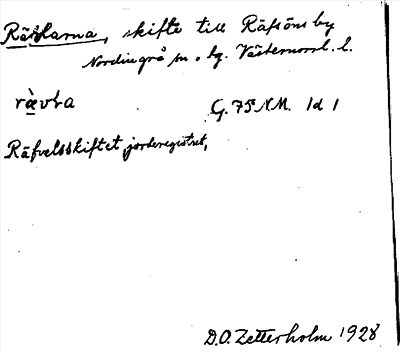 Räfslarna, skifte till Räfsöns by
Nordingrå sn o tg. Västernorrl. l.
G. 75 NM. 1d 1
Räfvelsskiftet jorderegistret,
D.O. Zetterholm 1928